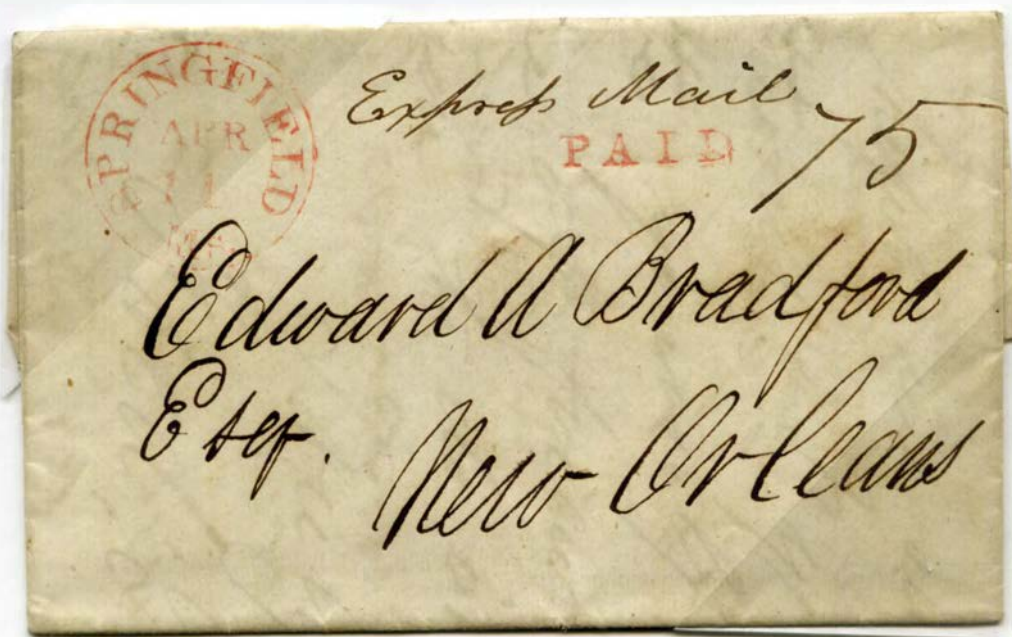 SPRINGFIELD
APR
11
Ms.
Express Mail
PAID
75
Edward A Bradford
Esqr.
New Orleans